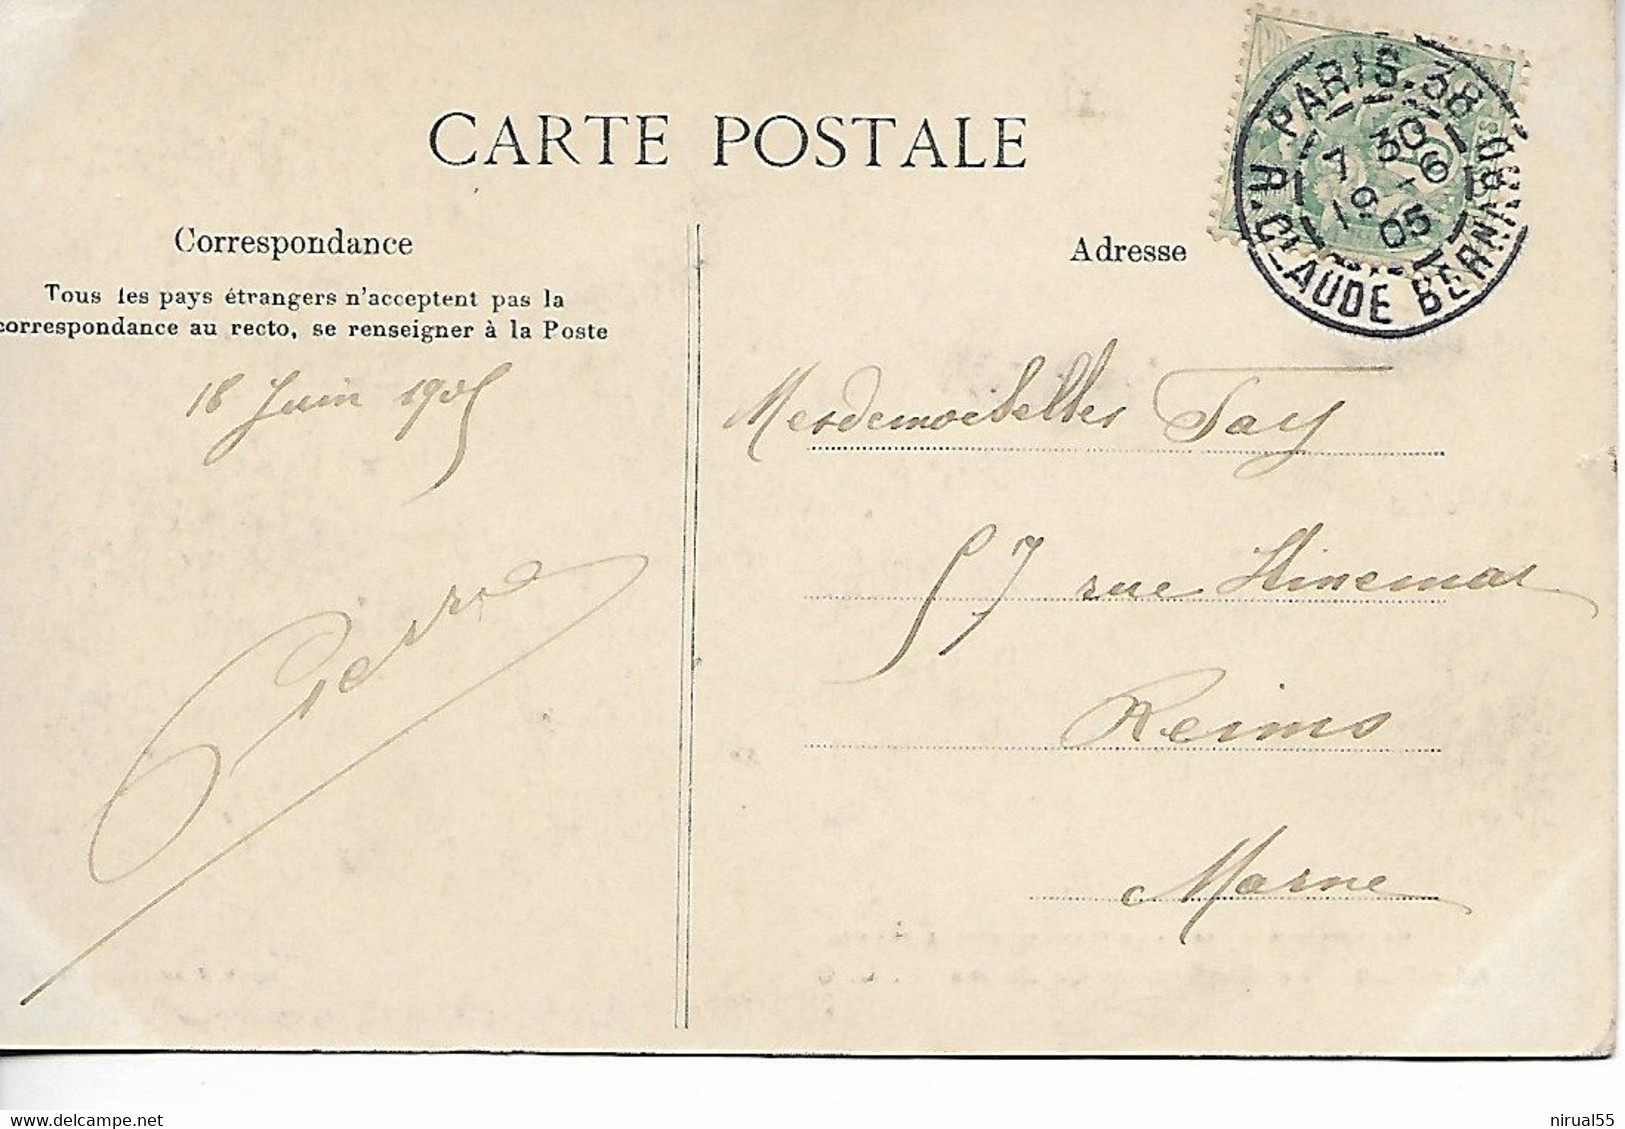 CARTE POSTALE
Correspondance
Tous les pays étrangers n'acceptent pas la
correspondance au recto, se renseigner à la Poste
18 Juin 1905
Pierre
Adresse
PARIS-38
R. CLAUDE BERNARD
7 30
19 -6
05
Mesdemoiselles Tay
57 rue Hincmar
Reims
Marne
nirual55